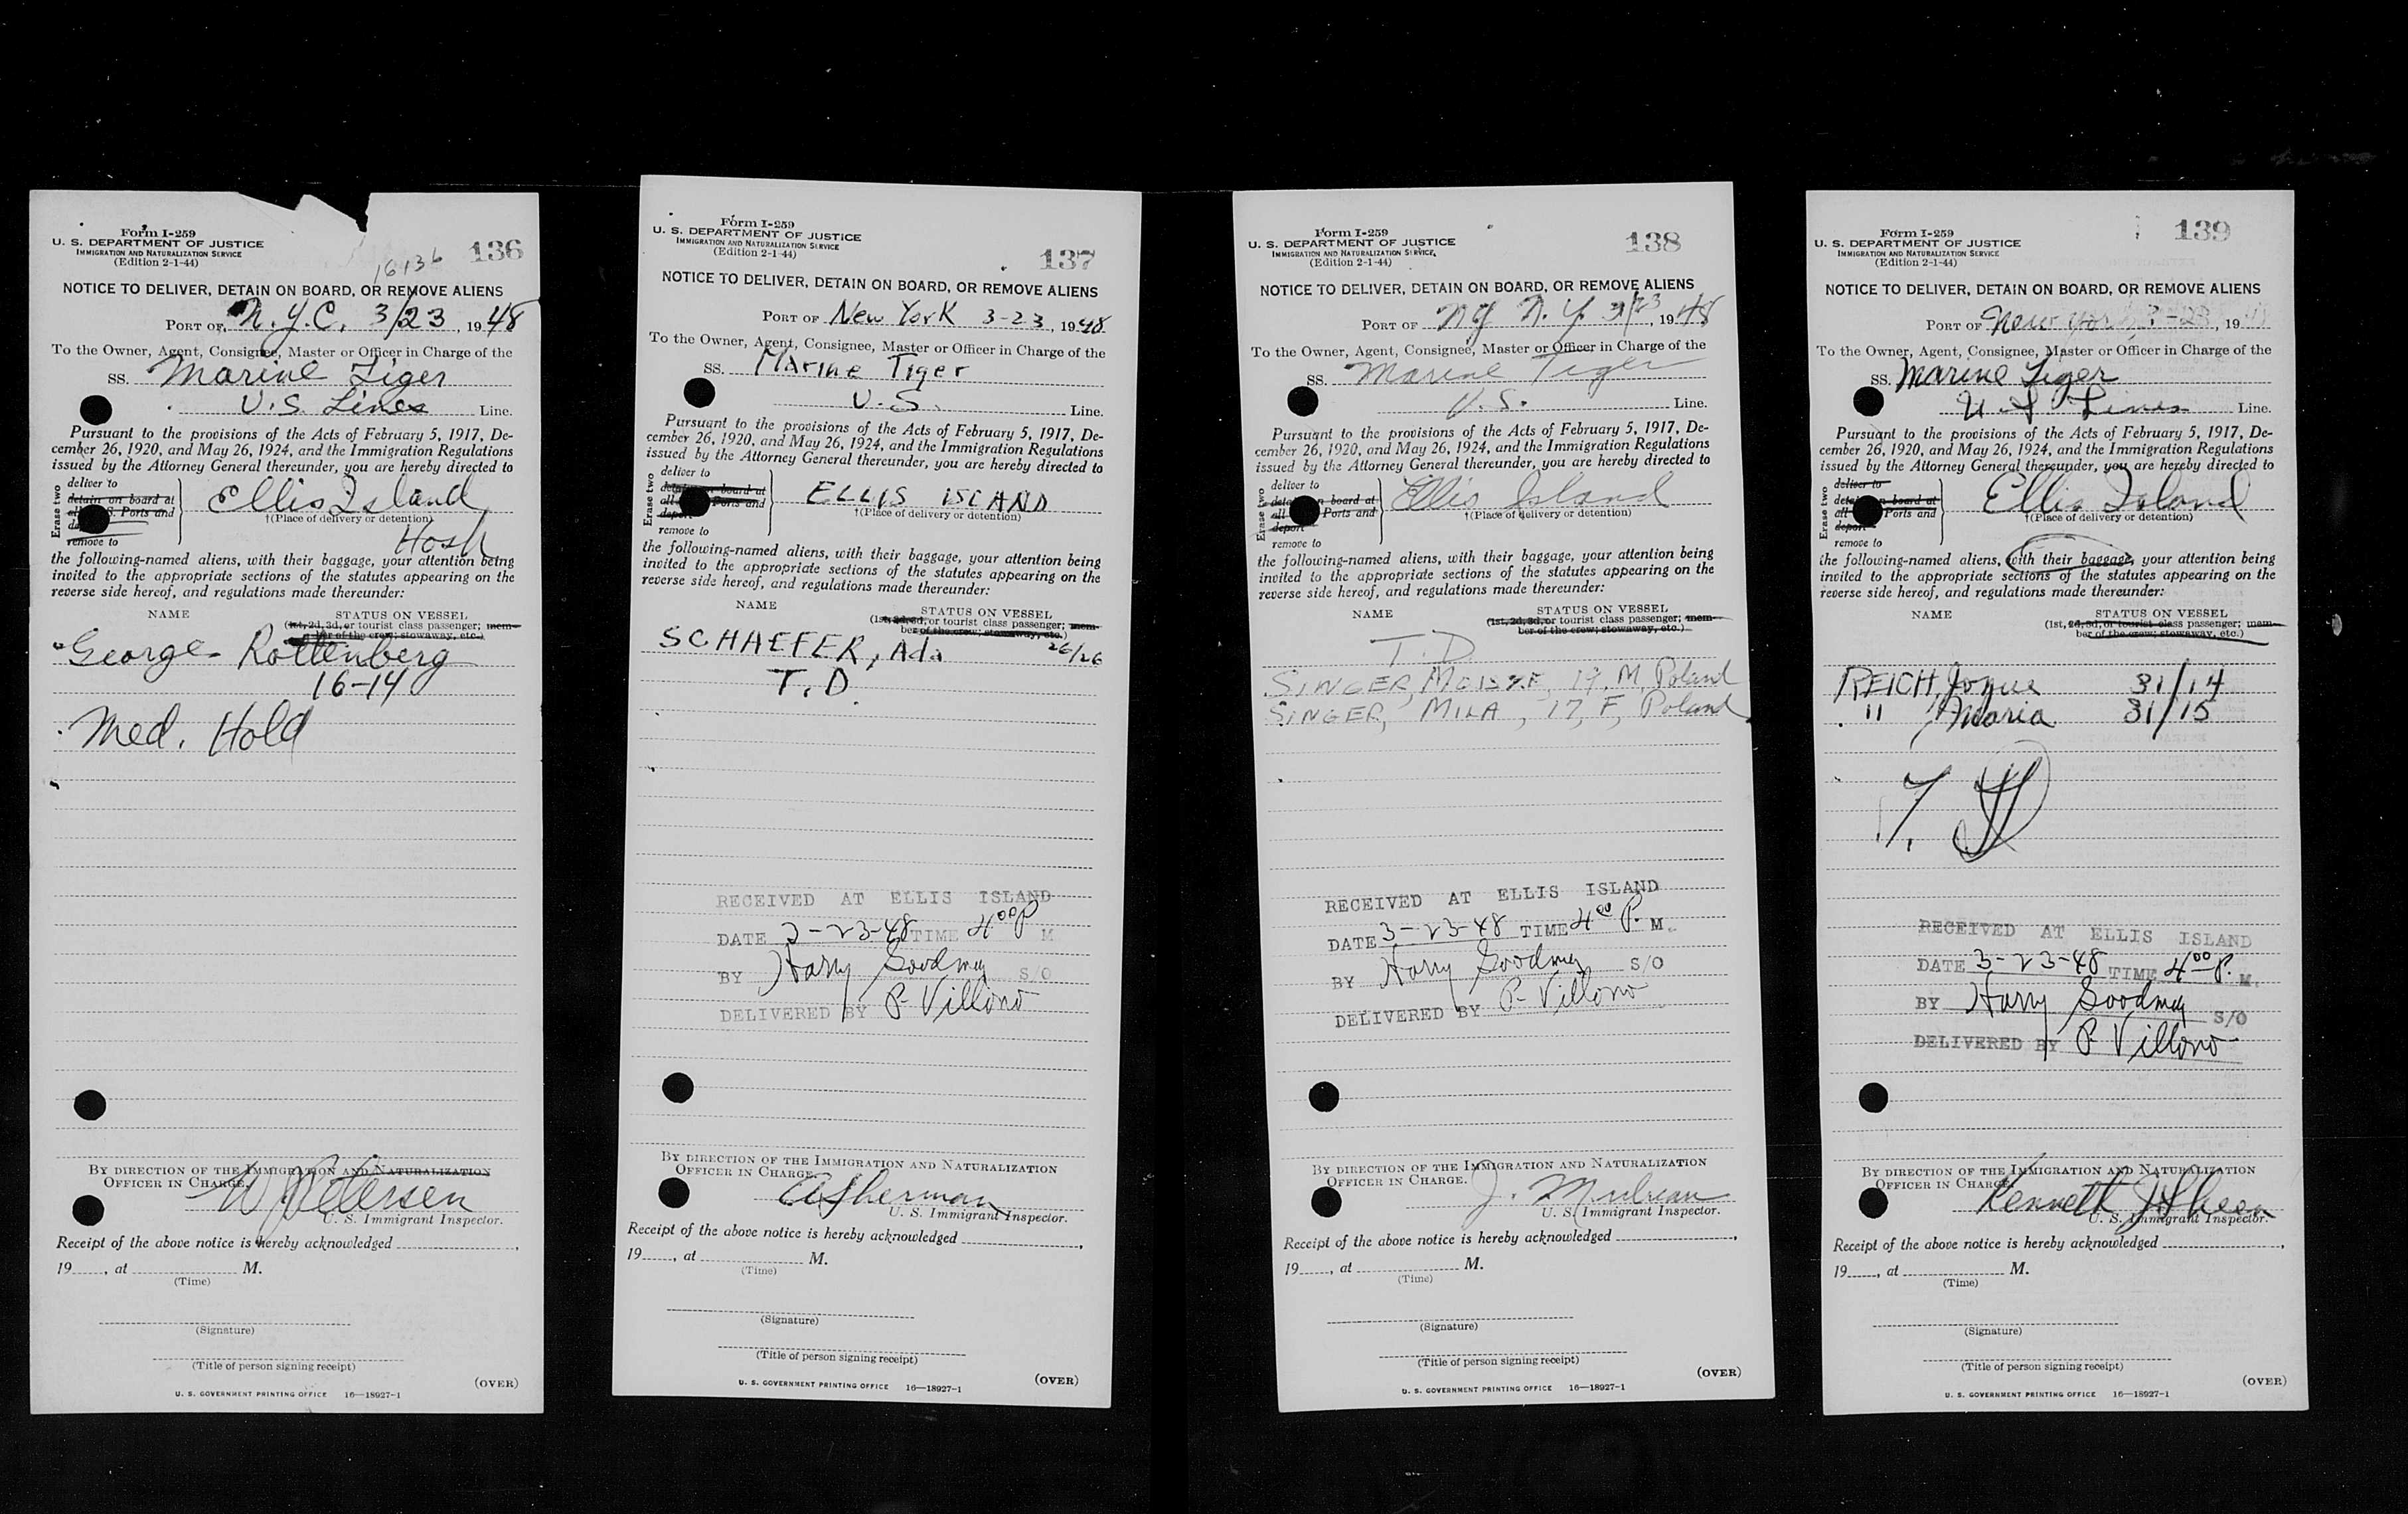 Form I-259
U. S. DEPARTMENT OF JUSTICE
IMMIGRATION AND NATURALIZATION SERVICE
(Edition 2-1-44)
16136
136
NOTICE TO DELIVER, DETAIN ON BOARD, OR REMOVE ALIENS
PORT OF N.Y.C. 3/23, 1948
To the Owner, Agent, Consignee, Master or Officer in Charge of the
SS. Marine Tiger
U.S. Lines Line.
Pursuant to the provisions of the Acts of February 5, 1917, De-
cember 26, 1920, and May 26, 1924, and the Immigration Regulations
issued by the Attorney General thereunder, you are hereby directed to
Erase two
deliver to
detain on board at
all U. S. Ports and
remove to
Ellis Island
†(Place of delivery or detention)
Hosp
the following-named aliens, with their baggage, your attention being
invited to the appropriate sections of the statutes appearing on the
reverse side hereof, and regulations made thereunder:
NAME STATUS ON VESSEL
(1st, 2d, 3d, or tourist class passenger; mem-
ber of the crew; stowaway, etc.)
George Rottenberg
16-14
Med. Hold
BY DIRECTION OF THE IMMIGRATION AND NATURALIZATION
OFFICER IN CHARGE.
W Petersen
U. S. Immigrant Inspector.
Receipt of the above notice is hereby acknowledged
19, at M.
(Time)
(Signature)
(Title of person signing receipt)
(OVER)
U. S. GOVERNMENT PRINTING OFFICE 16—18927-1
Form I-259
U. S. DEPARTMENT OF JUSTICE
IMMIGRATION AND NATURALIZATION SERVICE
(Edition 2-1-44)
137
NOTICE TO DELIVER, DETAIN ON BOARD, OR REMOVE ALIENS
PORT OF New York 3-23, 1948
To the Owner, Agent, Consignee, Master or Officer in Charge of the
SS. Marine Tiger
U.S. Line.
Pursuant to the provisions of the Acts of February 5, 1917, De-
cember 26, 1920, and May 26, 1924, and the Immigration Regulations
issued by the Attorney General thereunder, you are hereby directed to
Erase two
deliver to
detain on board at
all Ports and
deport
remove to
ELLIS ISLAND
†(Place of delivery or detention)
the following-named aliens, with their baggage, your attention being
invited to the appropriate sections of the statutes appearing on the
reverse side hereof, and regulations made thereunder:
NAME STATUS ON VESSEL
(1st, 2d, 3d, or tourist class passenger; mem-
ber of the crew; stowaway, etc.)
SCHAEFER, Ada 26/26
T.D.
RECEIVED AT ELLIS ISLAND
DATE 3-23-48 TIME 4 00 P M
BY Harry Goodmey S/O
DELIVERED BY P. Villono
BY DIRECTION OF THE IMMIGRATION AND NATURALIZATION
OFFICER IN CHARGE.
A Sherman
U. S. Immigrant Inspector.
Receipt of the above notice is hereby acknowledged
19, at M.
(Time)
(Signature)
(Title of person signing receipt)
(OVER)
U. S. GOVERNMENT PRINTING OFFICE 16—18927-1
Form I-259
U. S. DEPARTMENT OF JUSTICE
IMMIGRATION AND NATURALIZATION SERVICE
(Edition 2-1-44)
138
NOTICE TO DELIVER, DETAIN ON BOARD, OR REMOVE ALIENS
PORT OF NY N.Y. 3/23, 1948
To the Owner, Agent, Consignee, Master or Officer in Charge of the
SS. Marine Tiger
U.S. Line.
Pursuant to the provisions of the Acts of February 5, 1917, De-
cember 26, 1920, and May 26, 1924, and the Immigration Regulations
issued by the Attorney General thereunder, you are hereby directed to
Erase two
deliver to
detain on board at
all Ports and
deport
remove to
Ellis Island
†(Place of delivery or detention)
the following-named aliens, with their baggage, your attention being
invited to the appropriate sections of the statutes appearing on the
reverse side hereof, and regulations made thereunder:
NAME STATUS ON VESSEL
(1st, 2d, 3d, or tourist class passenger; mem-
ber of the crew; stowaway, etc.)
T.D.
SINGER, 19, M, Poland
SINGER, MILA, 17, F, Poland
RECEIVED AT ELLIS ISLAND
DATE 3-23-48 TIME 4 00 P. M.
BY Harry Goodmey S/O
DELIVERED BY P. Villono
BY DIRECTION OF THE IMMIGRATION AND NATURALIZATION
OFFICER IN CHARGE.
J.
U. S. Immigrant Inspector.
Receipt of the above notice is hereby acknowledged
19, at M.
(Time)
(Signature)
(Title of person signing receipt)
(OVER)
U. S. GOVERNMENT PRINTING OFFICE 16—18927-1
Form I-259
U. S. DEPARTMENT OF JUSTICE
IMMIGRATION AND NATURALIZATION SERVICE
(Edition 2-1-44)
139
NOTICE TO DELIVER, DETAIN ON BOARD, OR REMOVE ALIENS
PORT OF New York 3-23, 19
To the Owner, Agent, Consignee, Master or Officer in Charge of the
SS. Marine Tiger
U S Lines Line.
Pursuant to the provisions of the Acts of February 5, 1917, De-
cember 26, 1920, and May 26, 1924, and the Immigration Regulations
issued by the Attorney General thereunder, you are hereby directed to
Erase two
deliver to
detain on board at
all Ports and
deport
remove to
Ellis Island
†(Place of delivery or detention)
the following-named aliens, with their baggage, your attention being
invited to the appropriate sections of the statutes appearing on the
reverse side hereof, and regulations made thereunder:
NAME STATUS ON VESSEL
(1st, 2d, 3d, or tourist class passenger; mem-
ber of the crew; stowaway, etc.)
REICH, 31/14
" , Maria 31/15
T.D
RECEIVED AT ELLIS ISLAND
DATE 3-23-48 TIME 4 00 P. M.
BY Harry Goodmey S/O
DELIVERED BY P. Villono
BY DIRECTION OF THE IMMIGRATION AND NATURALIZATION
OFFICER IN CHARGE.
Kenneth J Sheen
U. S. Immigrant Inspector.
Receipt of the above notice is hereby acknowledged
19, at M.
(Time)
(Signature)
(Title of person signing receipt)
(OVER)
U. S. GOVERNMENT PRINTING OFFICE 16—18927-1